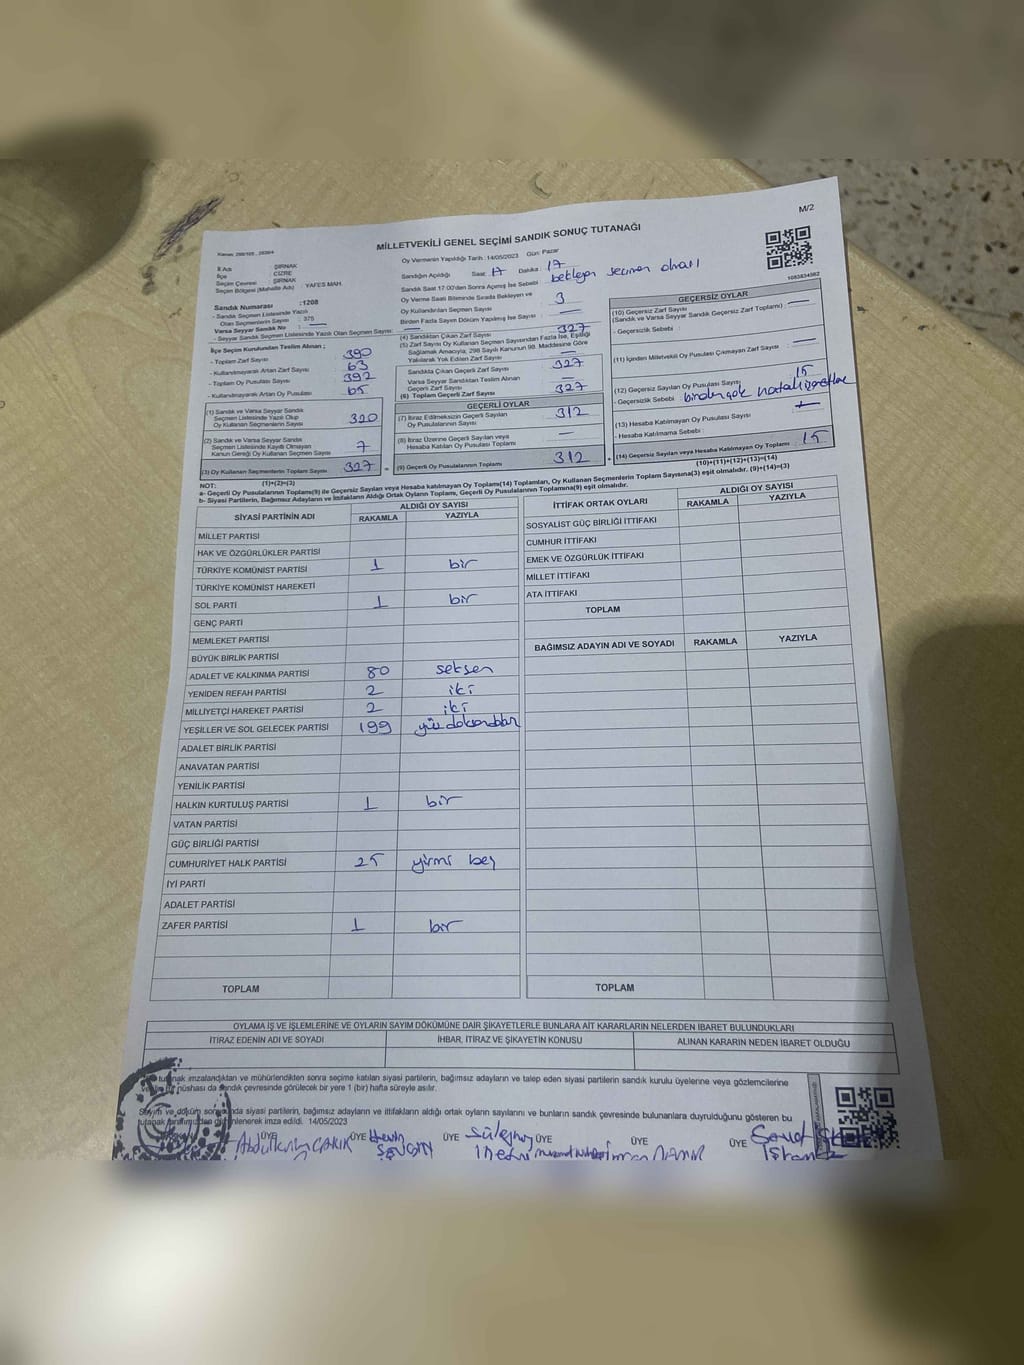 M/2
MİLLETVEKİLİ GENEL SEÇİMİ SANDIK SONUÇ TUTANAĞI
İl Adı : ŞIRNAK
İlçe : CİZRE
Seçim Çevresi : ŞIRNAK
Seçim Bölgesi (Mahalle Adı) : YAFES MAH.
Sandık Numarası : 1208
- Sandık Seçmen Listesinde Yazılı
Olan Seçmenlerin Sayısı : 375
Varsa Seyyar Sandık No :
- Seyyar Sandık Seçmen Listesinde Yazılı Olan Seçmen Sayısı:
Oy Vermenin Yapıldığı Tarih : 14/05/2023 Gün: Pazar
Sandığın Açıldığı Saat: 17 Dakika : 17
Sandık Saat 17:00'den Sonra Açılmış İse Sebebi : bekleyen seçmen olması
Oy Verme Saati Bitiminde Sırada Bekleyen ve
Oy Kullandırılan Seçmen Sayısı : 3
Birden Fazla Sayım Döküm Yapılmış İse Sayısı :
1083834582
İlçe Seçim Kurulundan Teslim Alınan ;
- Toplam Zarf Sayısı : 390
- Kullanılmayarak Artan Zarf Sayısı : 63
- Toplam Oy Pusulası Sayısı : 392
- Kullanılmayarak Artan Oy Pusulası : 65
(1) Sandık ve Varsa Seyyar Sandık
Seçmen Listesinde Yazılı Olup
Oy Kullanan Seçmenlerin Sayısı 320
(2) Sandık ve Varsa Seyyar Sandık
Seçmen Listesinde Kayıtlı Olmayan
Kanun Gereği Oy Kullanan Seçmen Sayısı 7
(3) Oy Kullanan Seçmenlerin Toplam Sayısı 327
(1)+(2)=(3)
(4) Sandıktan Çıkan Zarf Sayısı : 327
(5) Zarf Sayısı Oy Kullanan Seçmen Sayısından Fazla İse, Eşitliği
Sağlamak Amacıyla, 298 Sayılı Kanunun 98. Maddesine Göre
Yakılarak Yok Edilen Zarf Sayısı :
Sandıkta Çıkan Geçerli Zarf Sayısı : 327
Varsa Seyyar Sandıktan Teslim Alınan
Geçerli Zarf Sayısı :
(6) Toplam Geçerli Zarf Sayısı : 327
GEÇERLİ OYLAR
(7) İtiraz Edilmeksizin Geçerli Sayılan
Oy Pusulalarının Sayısı : 312
(8) İtiraz Üzerine Geçerli Sayılan veya
Hesaba Katılan Oy Pusulası Toplamı :
(9) Geçerli Oy Pusulalarının Toplamı 312
GEÇERSİZ OYLAR
(10) Geçersiz Zarf Sayısı :
(Sandık ve Varsa Seyyar Sandık Geçersiz Zarf Toplamı)
- Geçersizlik Sebebi :
(11) İçinden Milletvekili Oy Pusulası Çıkmayan Zarf Sayısı :
(12) Geçersiz Sayılan Oy Pusulası Sayısı : 15
- Geçersizlik Sebebi : birden çok
(13) Hesaba Katılmayan Oy Pusulası Sayısı :
- Hesaba Katılmama Sebebi :
(14) Geçersiz Sayılan veya Hesaba Katılmayan Oy Toplamı : 15
(10)+(11)+(12)+(13)=(14)
NOT:
a- Geçerli Oy Pusulalarının Toplamı(9) ile Geçersiz Sayılan veya Hesaba Katılmayan Oy Toplamı(14) Toplamları, Oy Kullanan Seçmenlerin Toplam Sayısına(3) eşit olmalıdır. (9)+(14)=(3)
b- Siyasi Partilerin, Bağımsız Adayların ve İttifakların Aldığı Ortak Oyların Toplamı, Geçerli Oy Pusulalarının Toplamına(9) eşit olmalıdır.
SİYASİ PARTİNİN ADI ALDIĞI OY SAYISI
RAKAMLA YAZIYLA
MİLLET PARTİSİ
HAK VE ÖZGÜRLÜKLER PARTİSİ
TÜRKİYE KOMÜNİST PARTİSİ 1 bir
TÜRKİYE KOMÜNİST HAREKETİ
SOL PARTİ 1 bir
GENÇ PARTİ
MEMLEKET PARTİSİ
BÜYÜK BİRLİK PARTİSİ
ADALET VE KALKINMA PARTİSİ 80 seksen
YENİDEN REFAH PARTİSİ 2 iki
MİLLİYETÇİ HAREKET PARTİSİ 2 iki
YEŞİLLER VE SOL GELECEK PARTİSİ 199 yüzdoksandokuz
ADALET BİRLİK PARTİSİ
ANAVATAN PARTİSİ
YENİLİK PARTİSİ
HALKIN KURTULUŞ PARTİSİ 1 bir
VATAN PARTİSİ
GÜÇ BİRLİĞİ PARTİSİ
CUMHURİYET HALK PARTİSİ 25 yirmi beş
İYİ PARTİ
ADALET PARTİSİ
ZAFER PARTİSİ 1 bir
TOPLAM
İTTİFAK ORTAK OYLARI ALDIĞI OY SAYISI
RAKAMLA YAZIYLA
SOSYALİST GÜÇ BİRLİĞİ İTTİFAKI
CUMHUR İTTİFAKI
EMEK VE ÖZGÜRLÜK İTTİFAKI
MİLLET İTTİFAKI
ATA İTTİFAKI
TOPLAM
BAĞIMSIZ ADAYIN ADI VE SOYADI RAKAMLA YAZIYLA
TOPLAM
OYLAMA İŞ VE İŞLEMLERİNE VE OYLARIN SAYIM DÖKÜMÜNE DAİR ŞİKAYETLERLE BUNLARA AİT KARARLARIN NELERDEN İBARET BULUNDUKLARI
İTİRAZ EDENİN ADI VE SOYADI İHBAR, İTİRAZ VE ŞİKAYETİN KONUSU ALINAN KARARIN NEDEN İBARET OLDUĞU
tutanak imzalandıktan ve mühürlendikten sonra seçime katılan siyasi partilerin, bağımsız adayların ve talep eden siyasi partilerin sandık kurulu üyelerine veya gözlemcilerine
bir nüshası da sandık çevresinde görülecek bir yere 1 (bir) hafta süreyle asılır.
Sayım ve döküm sonucunda siyasi partilerin, bağımsız adayların ve ittifakların aldığı ortak oyların sayılarını ve bunların sandık çevresinde bulunanlara duyrulduğunu gösteren bu
tutanak tarafımızdan düzenlenerek imza edildi. 14/05/2023
ÜYE ÜYE ÜYE ÜYE ÜYE ÜYE